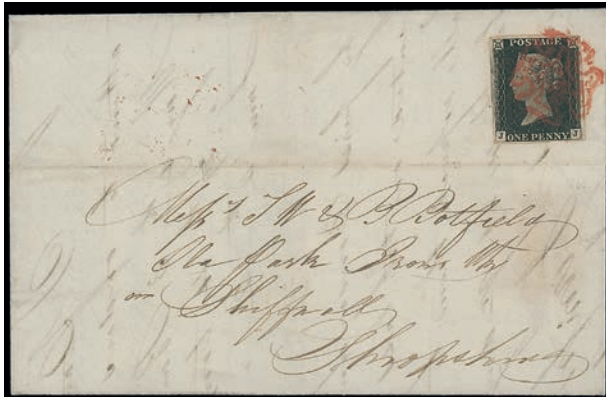 POSTAGE
J ONE PENNY J
Messrs T W & B Botfield
Park Iron
Shiffnall
Shropshire